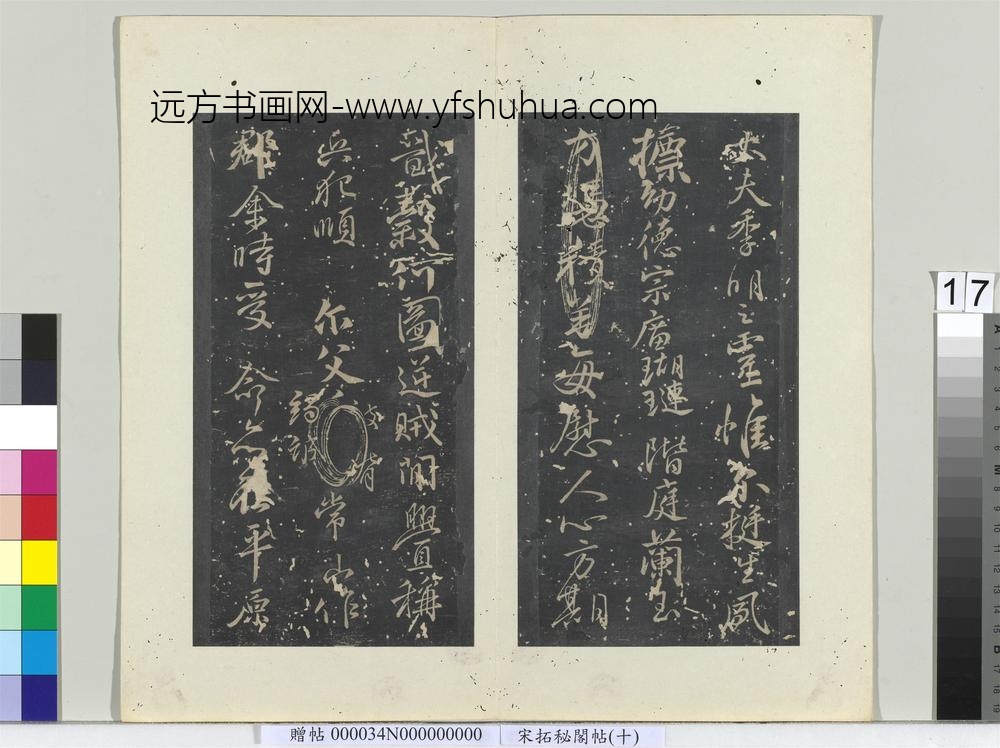 远方书画网-www.yfshuhua.com
大夫季明之靈惟尔挺生夙
摽幼德宗廟瑚璉階庭蘭玉
方憑積善每慰人心方期
戩穀何圖逆賊閒釁稱
兵犯順尔父
被脅
竭誠
常山作
郡余時受命亦在平原
17
贈帖 000034N000000000
宋拓秘閣帖(十)